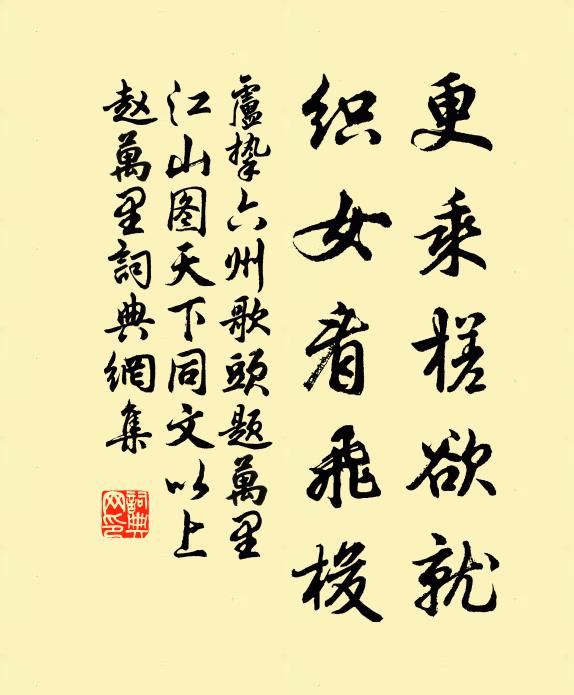 更乘槎欲就
织女看飛梭
盧摯六州歌頭题萬里
江山图天下同文以上
赵萬里詞典網集
詞典
网印